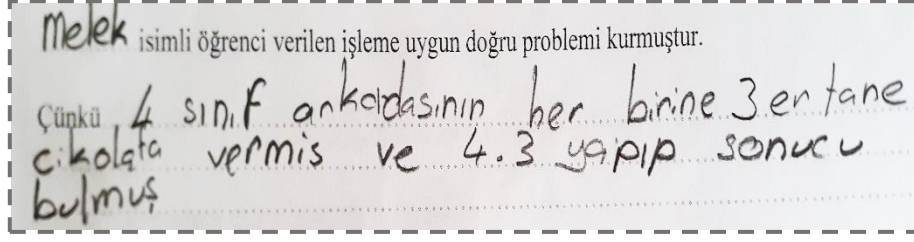 Melek isimli öğrenci verilen işleme uygun doğru problemi kurmuştur.
Çünkü 4 sınıf arkadasının her birine 3er tane
cikolata vermis ve 4.3 yapıp sonucu
bulmuş